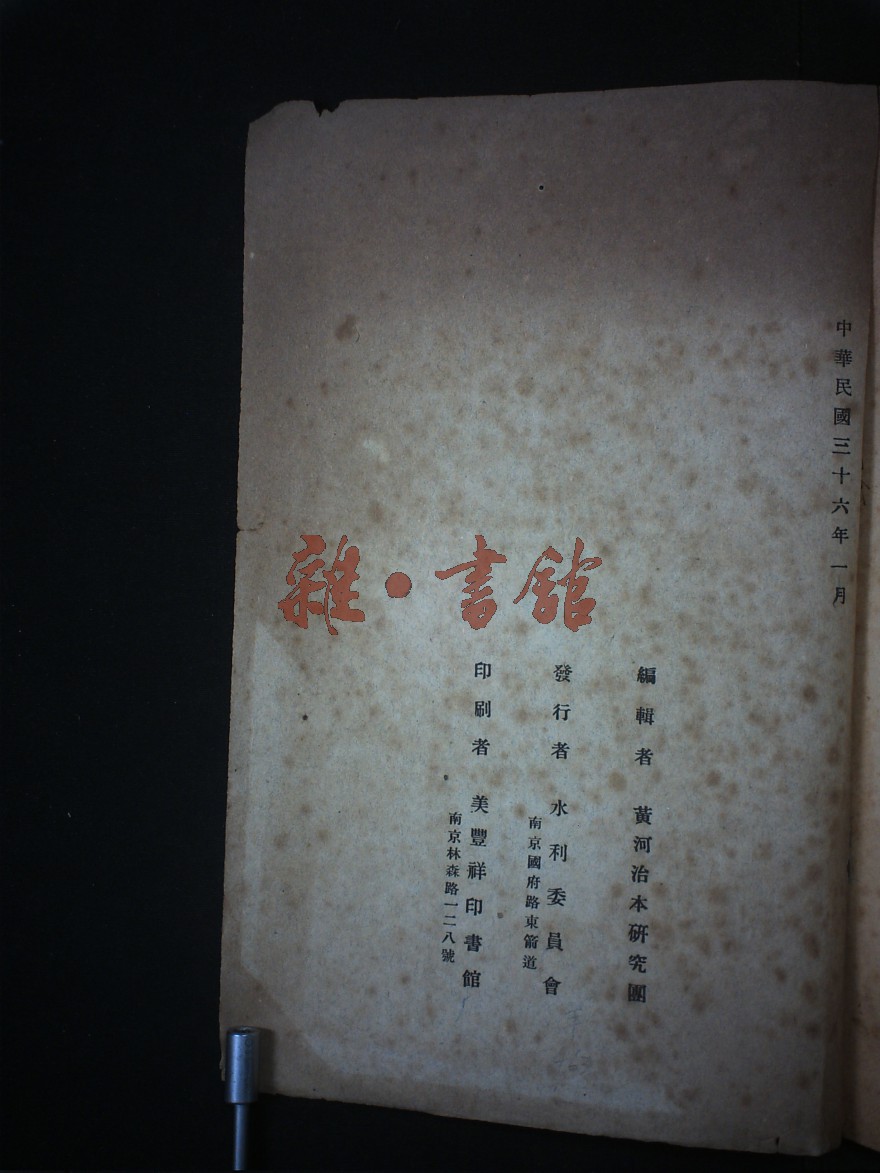 中華民國三十六年一月
編輯者 黃河治本研究團
發行者 水利委員會
南京國府路東箭道
印刷者 美豐祥印書館
南京林森路一二八號
雜·書館